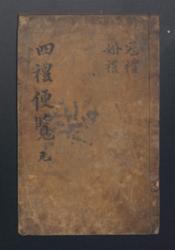 冠禮
婚禮
四禮便覽 元